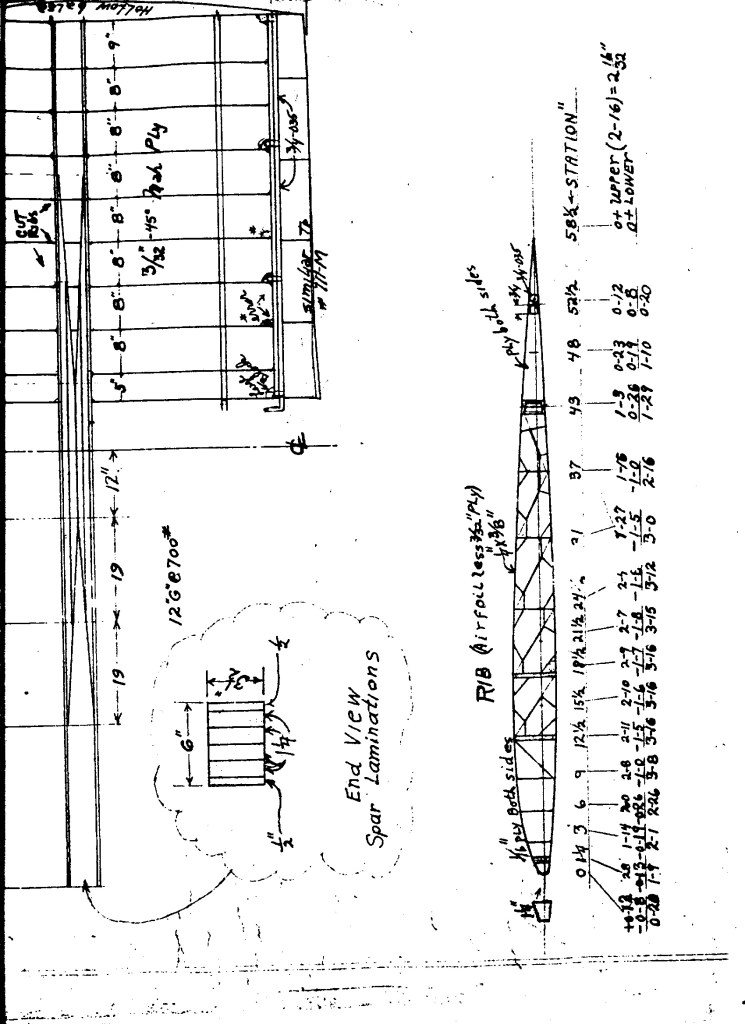 HOLLOW
9"
8"
8"
8"
8"
8"
8"
8"
8"
5"
CUT
Ribs
3/32" -45° Mah Ply
3/4-.035
similar To
# 711-M
℄
12"
19
19
12"G"@700#
6"
1/2"
1/2
End View
Spar Laminations
RIB (Airfoil less 3/32" PLY)
1/16" PLY Both sides
ply both sides
3/4-.035
0 1 1/4 3 6 9 12 1/2 15 1/2 18 1/2 21 1/2 24 1/2 31 37 43 48 52 1/2 58 1/2 ← STATION"
1-14 2-8 2-11 2-10 2-9 2-7 1-3 0-23 0-12 0+ Upper (2-16) = 2 16/32"
-0-8 -0-19 -1-0 -1-5 -1-6 -1-7 -1-8 -1-5 -1-0 0-26 0-19 0-8 0+ LOWER
0-20 1-9 2-1 2-26 3-8 3-16 3-16 3-16 3-15 3-12 3-0 2-16 1-29 1-10 0-20